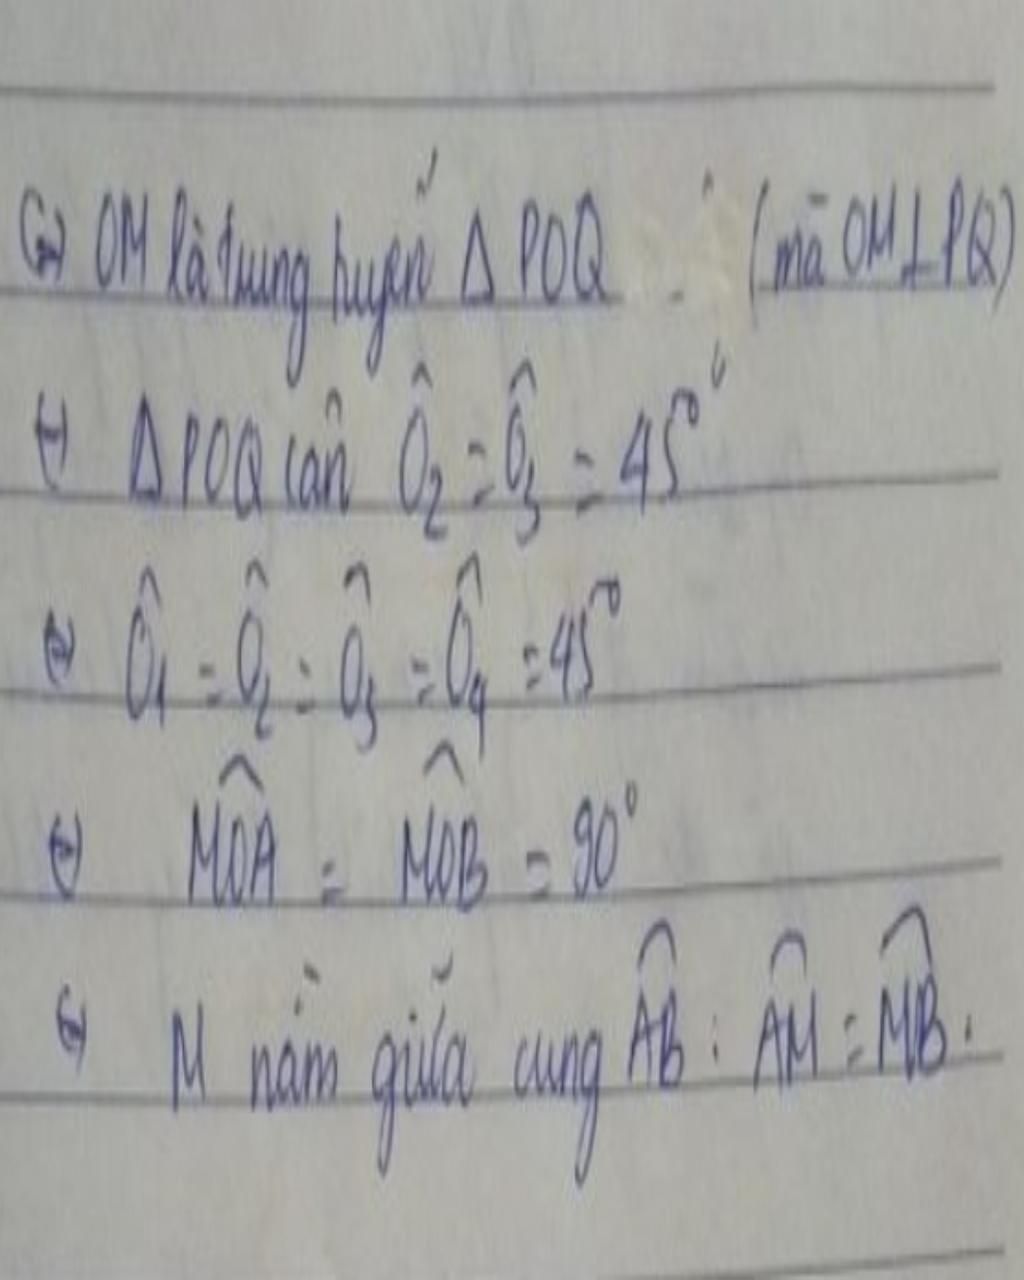 ⇔ OM là trung tuyến Δ POQ (mà OM ⊥ PQ)
⇔ Δ POQ cân Ô₂ = Ô₃ = 45°
⇔ Ô₁ = Ô₂ = Ô₃ = Ô₄ = 45°
⇔ M̂OA = M̂OB = 90°
⇔ M nằm giữa cung A͡B : A͡M = M͡B.